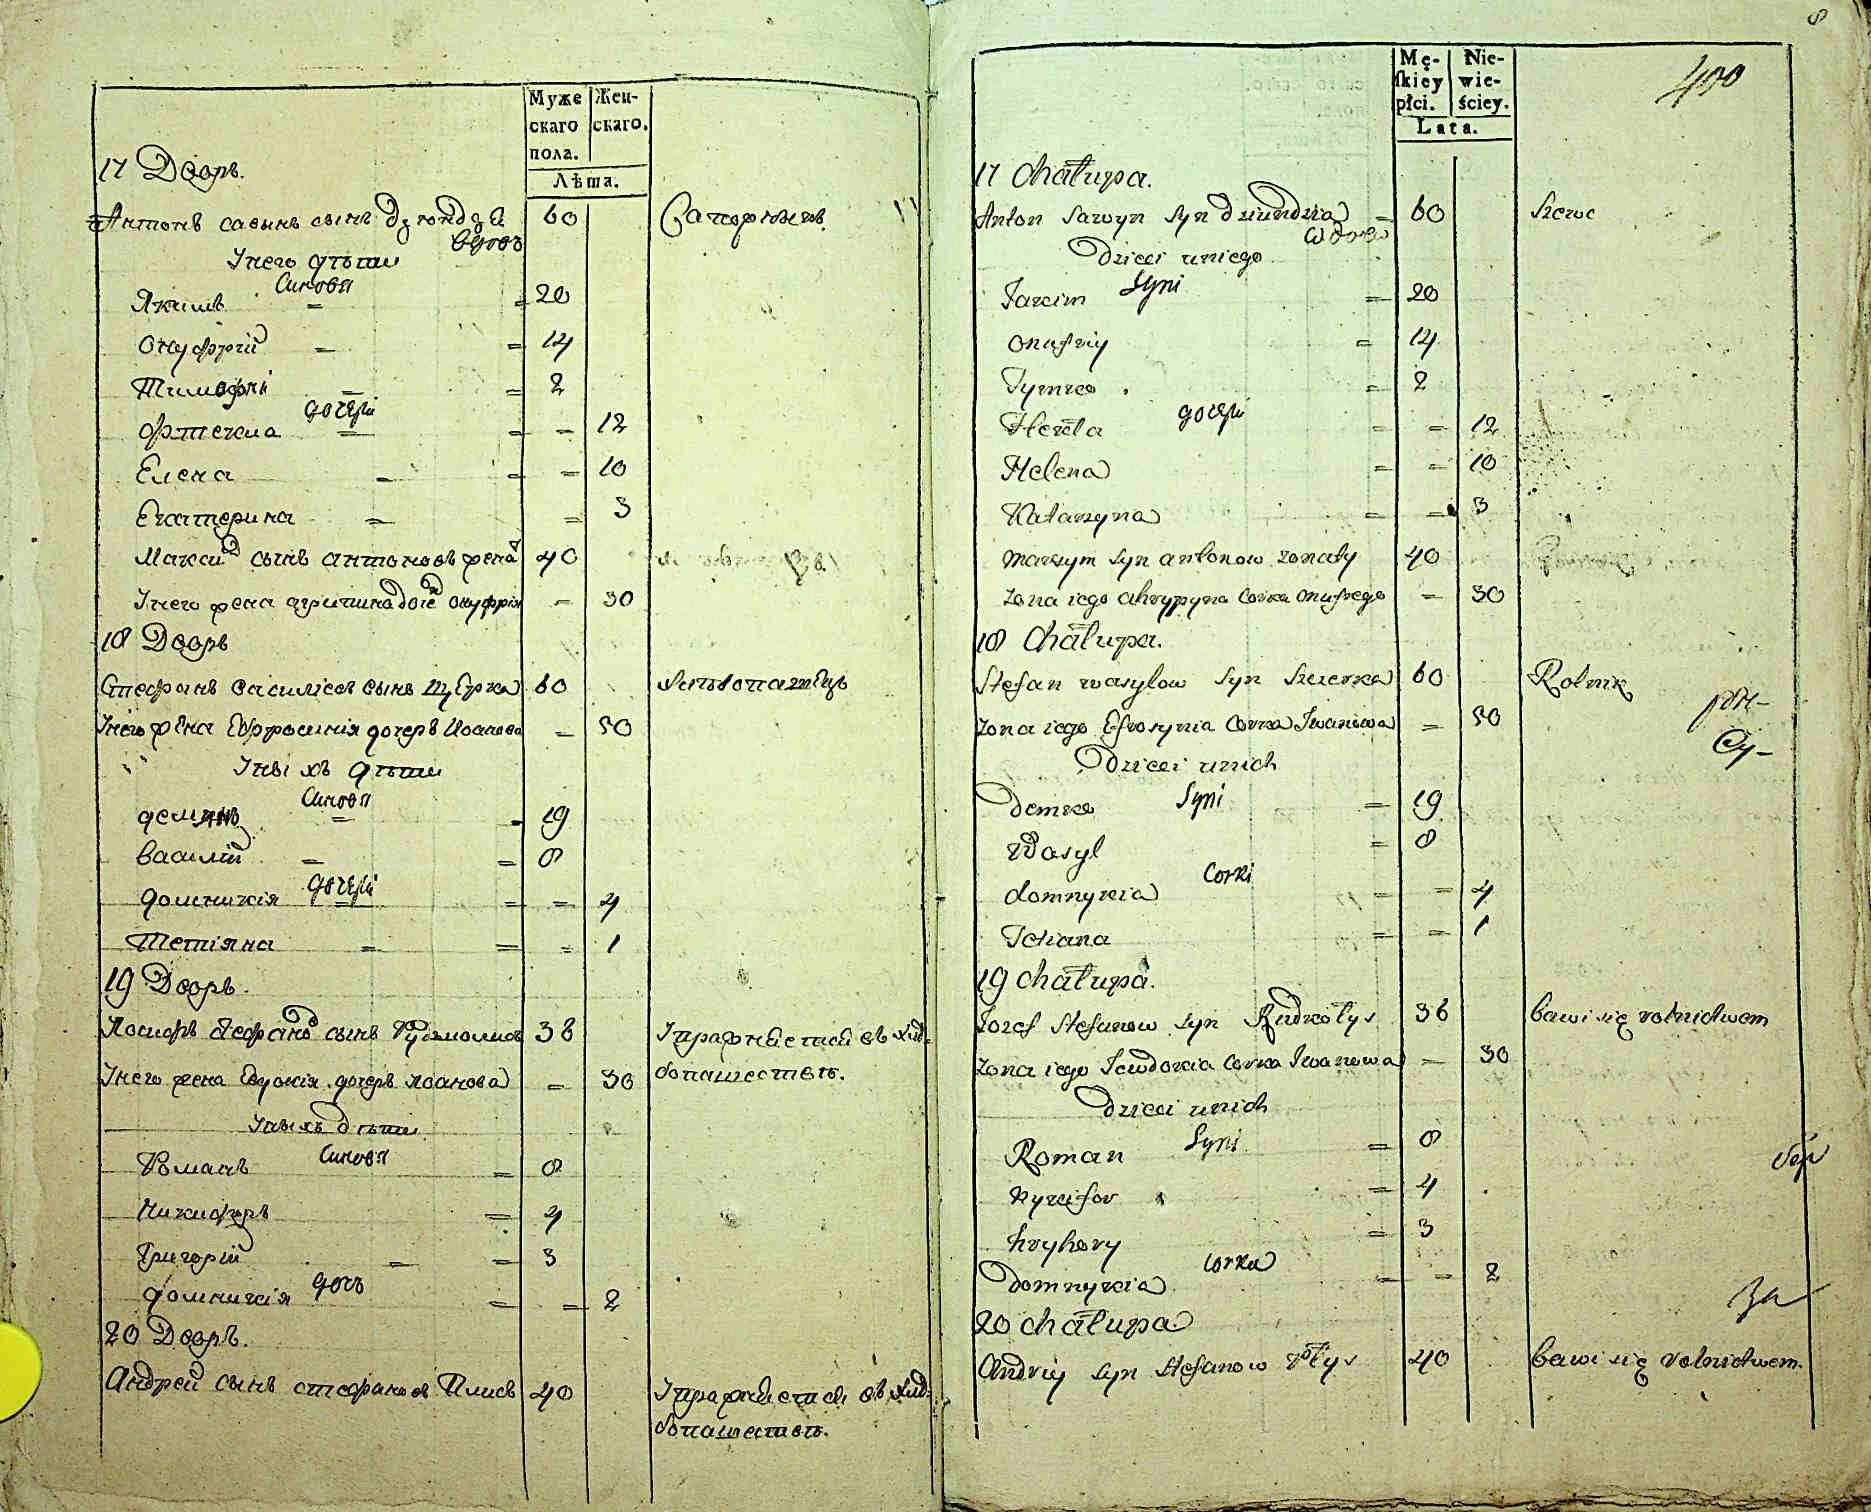 Муже
скаго
пола.
Жен-
скаго.
Лѣта.
17 Дворъ.
Антонъ савинъ сынъ Дзюндзя 60
вдовъ
Унего дѣти
Синовя
Якимъ = = 20
Онуфрій = = 14
Тимофій = = 2
дочери
= = - 12
Елена = = - 10
Екатерина = = 3
Максим сынъ антоновъ 40
Унего жена агрипина доче онуфрія - 30
18 Дворъ
Стефанъ василіевъ сынъ 60
Унего жена Евфросинія дочеръ Иванова - 50
Унихъ дѣти
Синовя
демянъ = - 19
василій = = 8
дочери
домникія = = 4
Тетіяна = = = 1
19 Дворъ.
Іосифъ Стефановъ сынъ 36 Упражняется въ хлѣ-
Унего жена Евдокія дочеръ Иванова - 30 бопашествѣ.
Унихъ дѣти
Синовя
Романъ = 8
Никифоръ = 4
Григорій = = 3
дочь
домникія = = 2
20 Дворъ.
Андрей сынъ стефановъ 40 Упражняется въ хлѣ-
бопашествѣ.
8
Mę-
skiey
płci.
Nie-
wie-
ściey.
Lata.
400
17 Chałupa.
Anton Sawyn Syn Dziundzia = 60 Szewc
Wdowec
Dzieci uniego
Syni
Jakim = 20
Onufriy = 14
Tymko = 2
дочери
= = 12
Helena = = 10
Katarzyna = = 3
Maksym Syn antonow żonaty 40
Żona iego Ahrypyna Corka Onufrego - 30
18 Chałupa.
Stefan wasylow Syn 60 Rolnik
Żona iego Efrosynia Corka Iwanowa - 50
Dzieci unich
Syni
Demko = 19
Wasyl = 8
Corki
domnykia = = 4
Tetiana = = 1
19 chałupa.
Jozef Stefanow Syn 36 bawi się rolnictwem
Żona iego Corka Iwanowa - 30
Dzieci unich
Syni
Roman = 8
Nykifor = 4
hryhory = 3
Corka
Domnykia = = 2
20 chałupa
Andriy Syn Stefanow 40 bawi się rolnictwem.